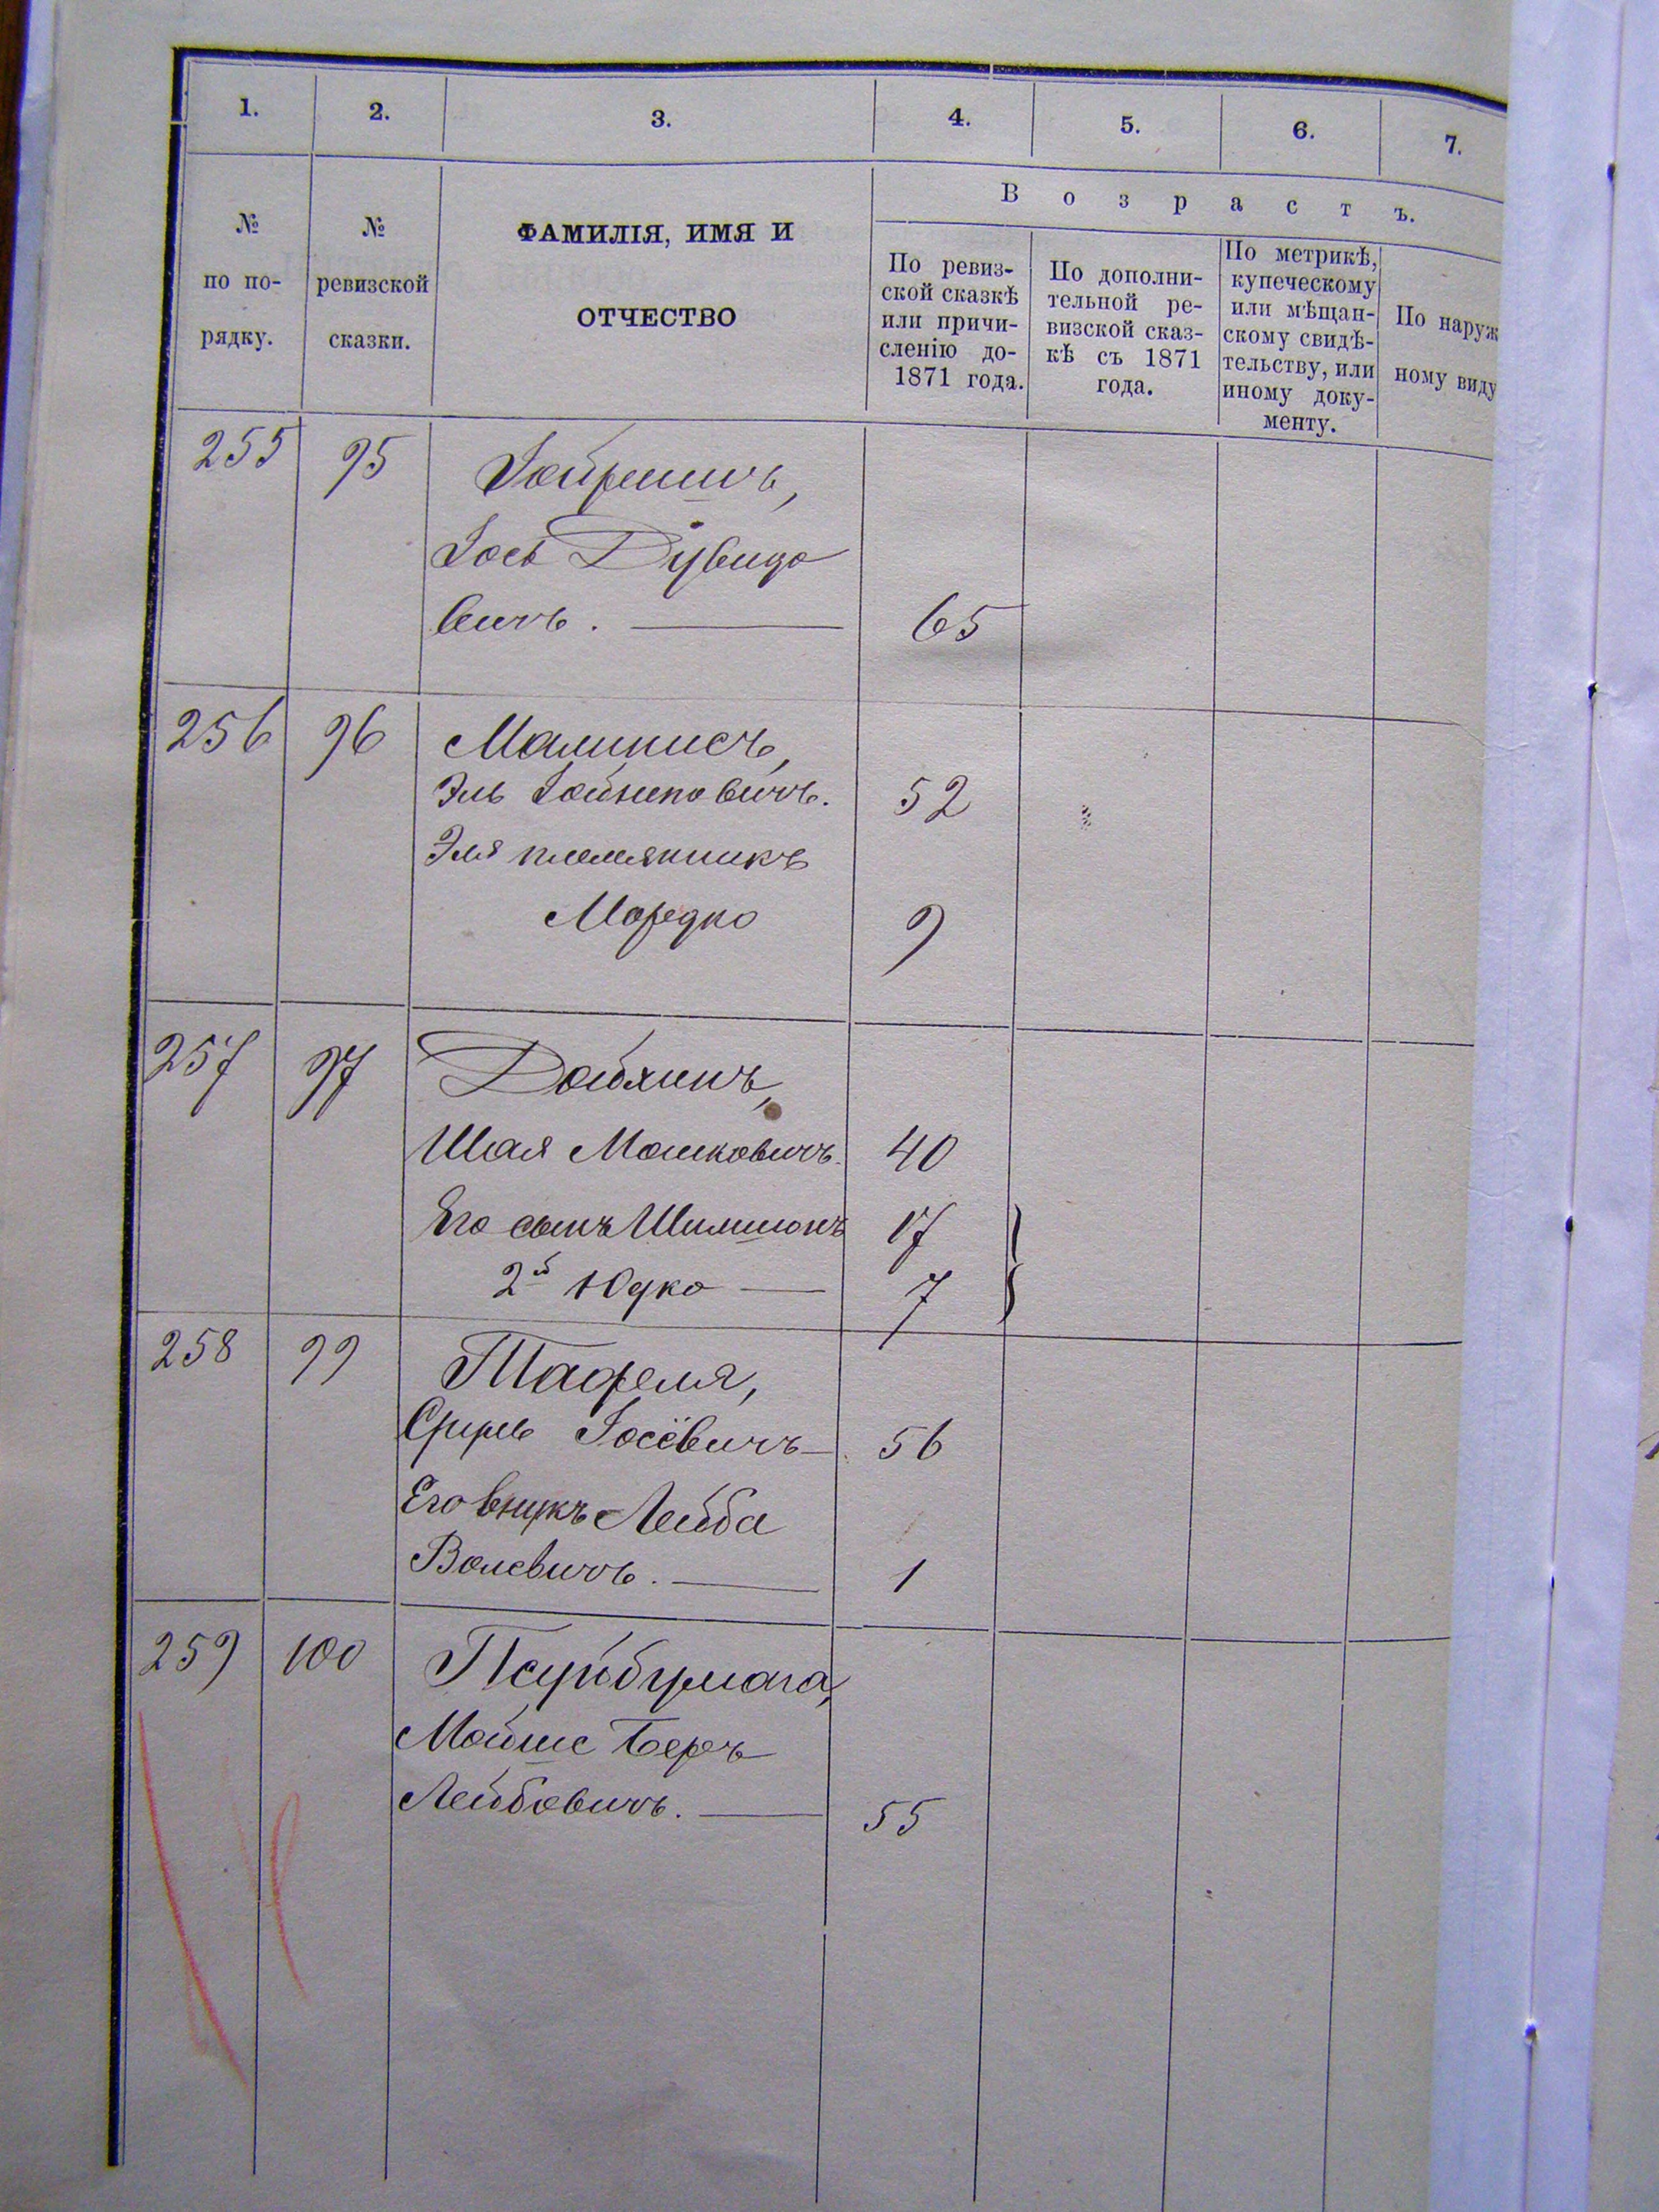 1. 2. 3. 4. 5. 6. 7.
№ по по- рядку.
№ ревизской сказки.
ФАМИЛІЯ, ИМЯ И
ОТЧЕСТВО
В о з р а с т ъ.
По ревиз-
ской сказкѣ
или причи-
сленію до-
1871 года.
По дополни-
тельной ре-
визской сказ-
кѣ съ 1871
года.
По метрикѣ,
купеческому
или мѣщан-
скому свидѣ-
тельству, или
иному доку-
менту.
По наруж
ному виду
255 95
Іось Дувидо
вичъ. 65
256 96
Эль 52
Эля племянникъ
Мордко 9
257 97
Шая Мошковичъ 40
Его сынъ Шимшонъ 17
2й Юдко 7
258 99 Тафеля,
Сруль Іосёвичъ 56
Его внукъ Лейба
Волевичъ. 1
259 100
Мойше Беръ
Лейбовичъ. 55